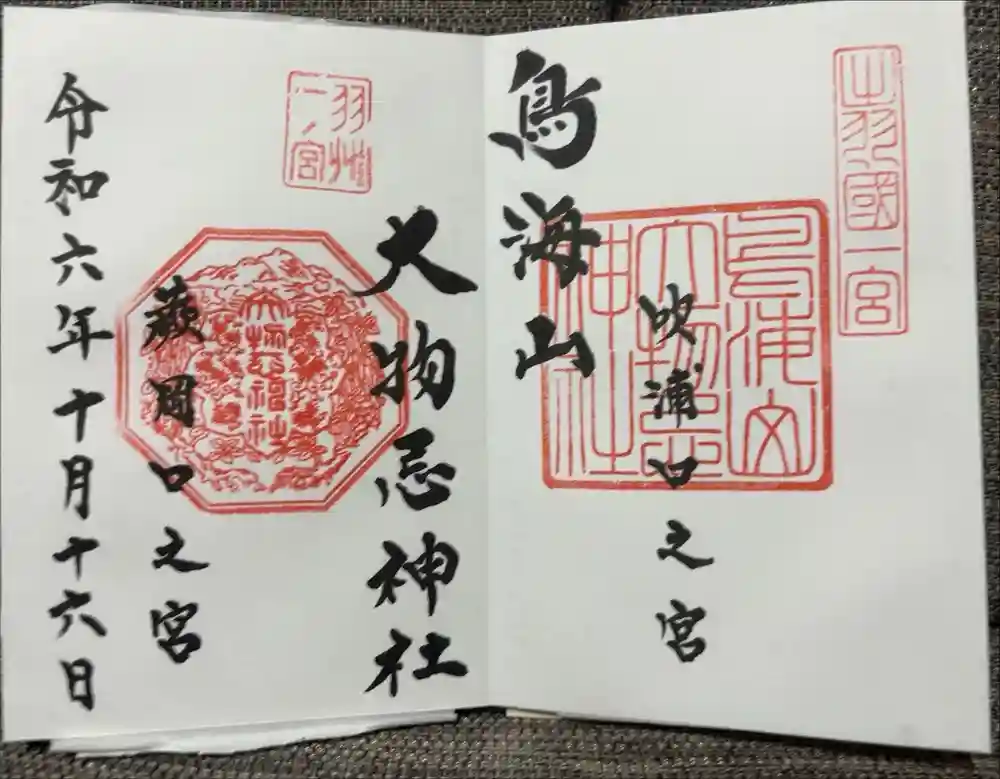 出羽國一宮
鳥海山
大物忌
神社
吹浦口之宮
鳥海山
大物忌神社
羽州
一ノ宮
大物忌神社
蕨岡口之宮
令和六年十月十六日